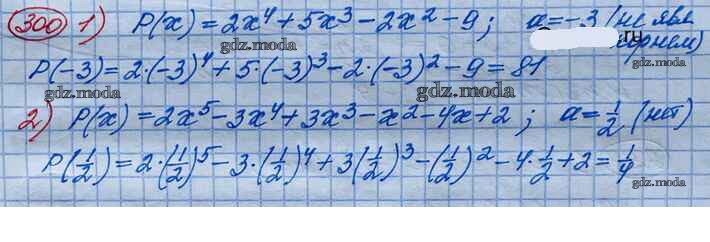 300 1) P(x) = 2x⁴ + 5x³ - 2x² - 9; a = -3 (не явл
gdz.moda .ru
P(-3) = 2·(-3)⁴ + 5·(-3)³ - 2·(-3)² - 9 = 81
gdz.moda gdz.moda
2) P(x) = 2x⁵ - 3x⁴ + 3x³ - x² - 4x + 2; a = 1/2 (нет)
P(1/2) = 2·(1/2)⁵ - 3·(1/2)⁴ + 3(1/2)³ - (1/2)² - 4·1/2 + 2 = 1/4
gdz.moda gdz.moda